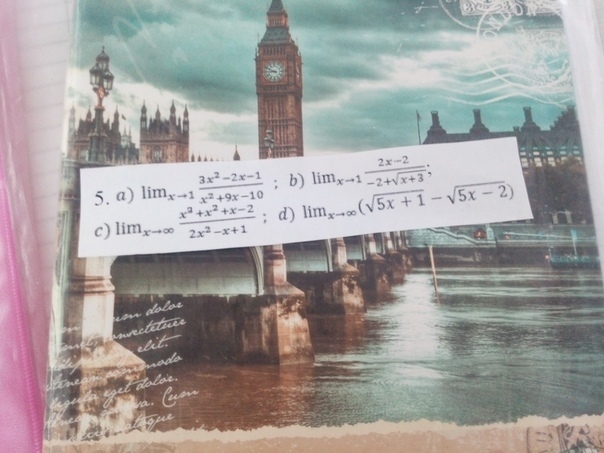 5. a) lim x→1 (3x² −2x−1)/(x² +9x−10) ; b) lim x→1 (2x−2)/(−2+√(x+3));
c) lim x→∞ (x³ +x² +x−2)/(2x² −x+1) ; d) lim x→∞ (√(5x + 1) − √(5x − 2))
dolor
elit.
eget dolor.
Cum